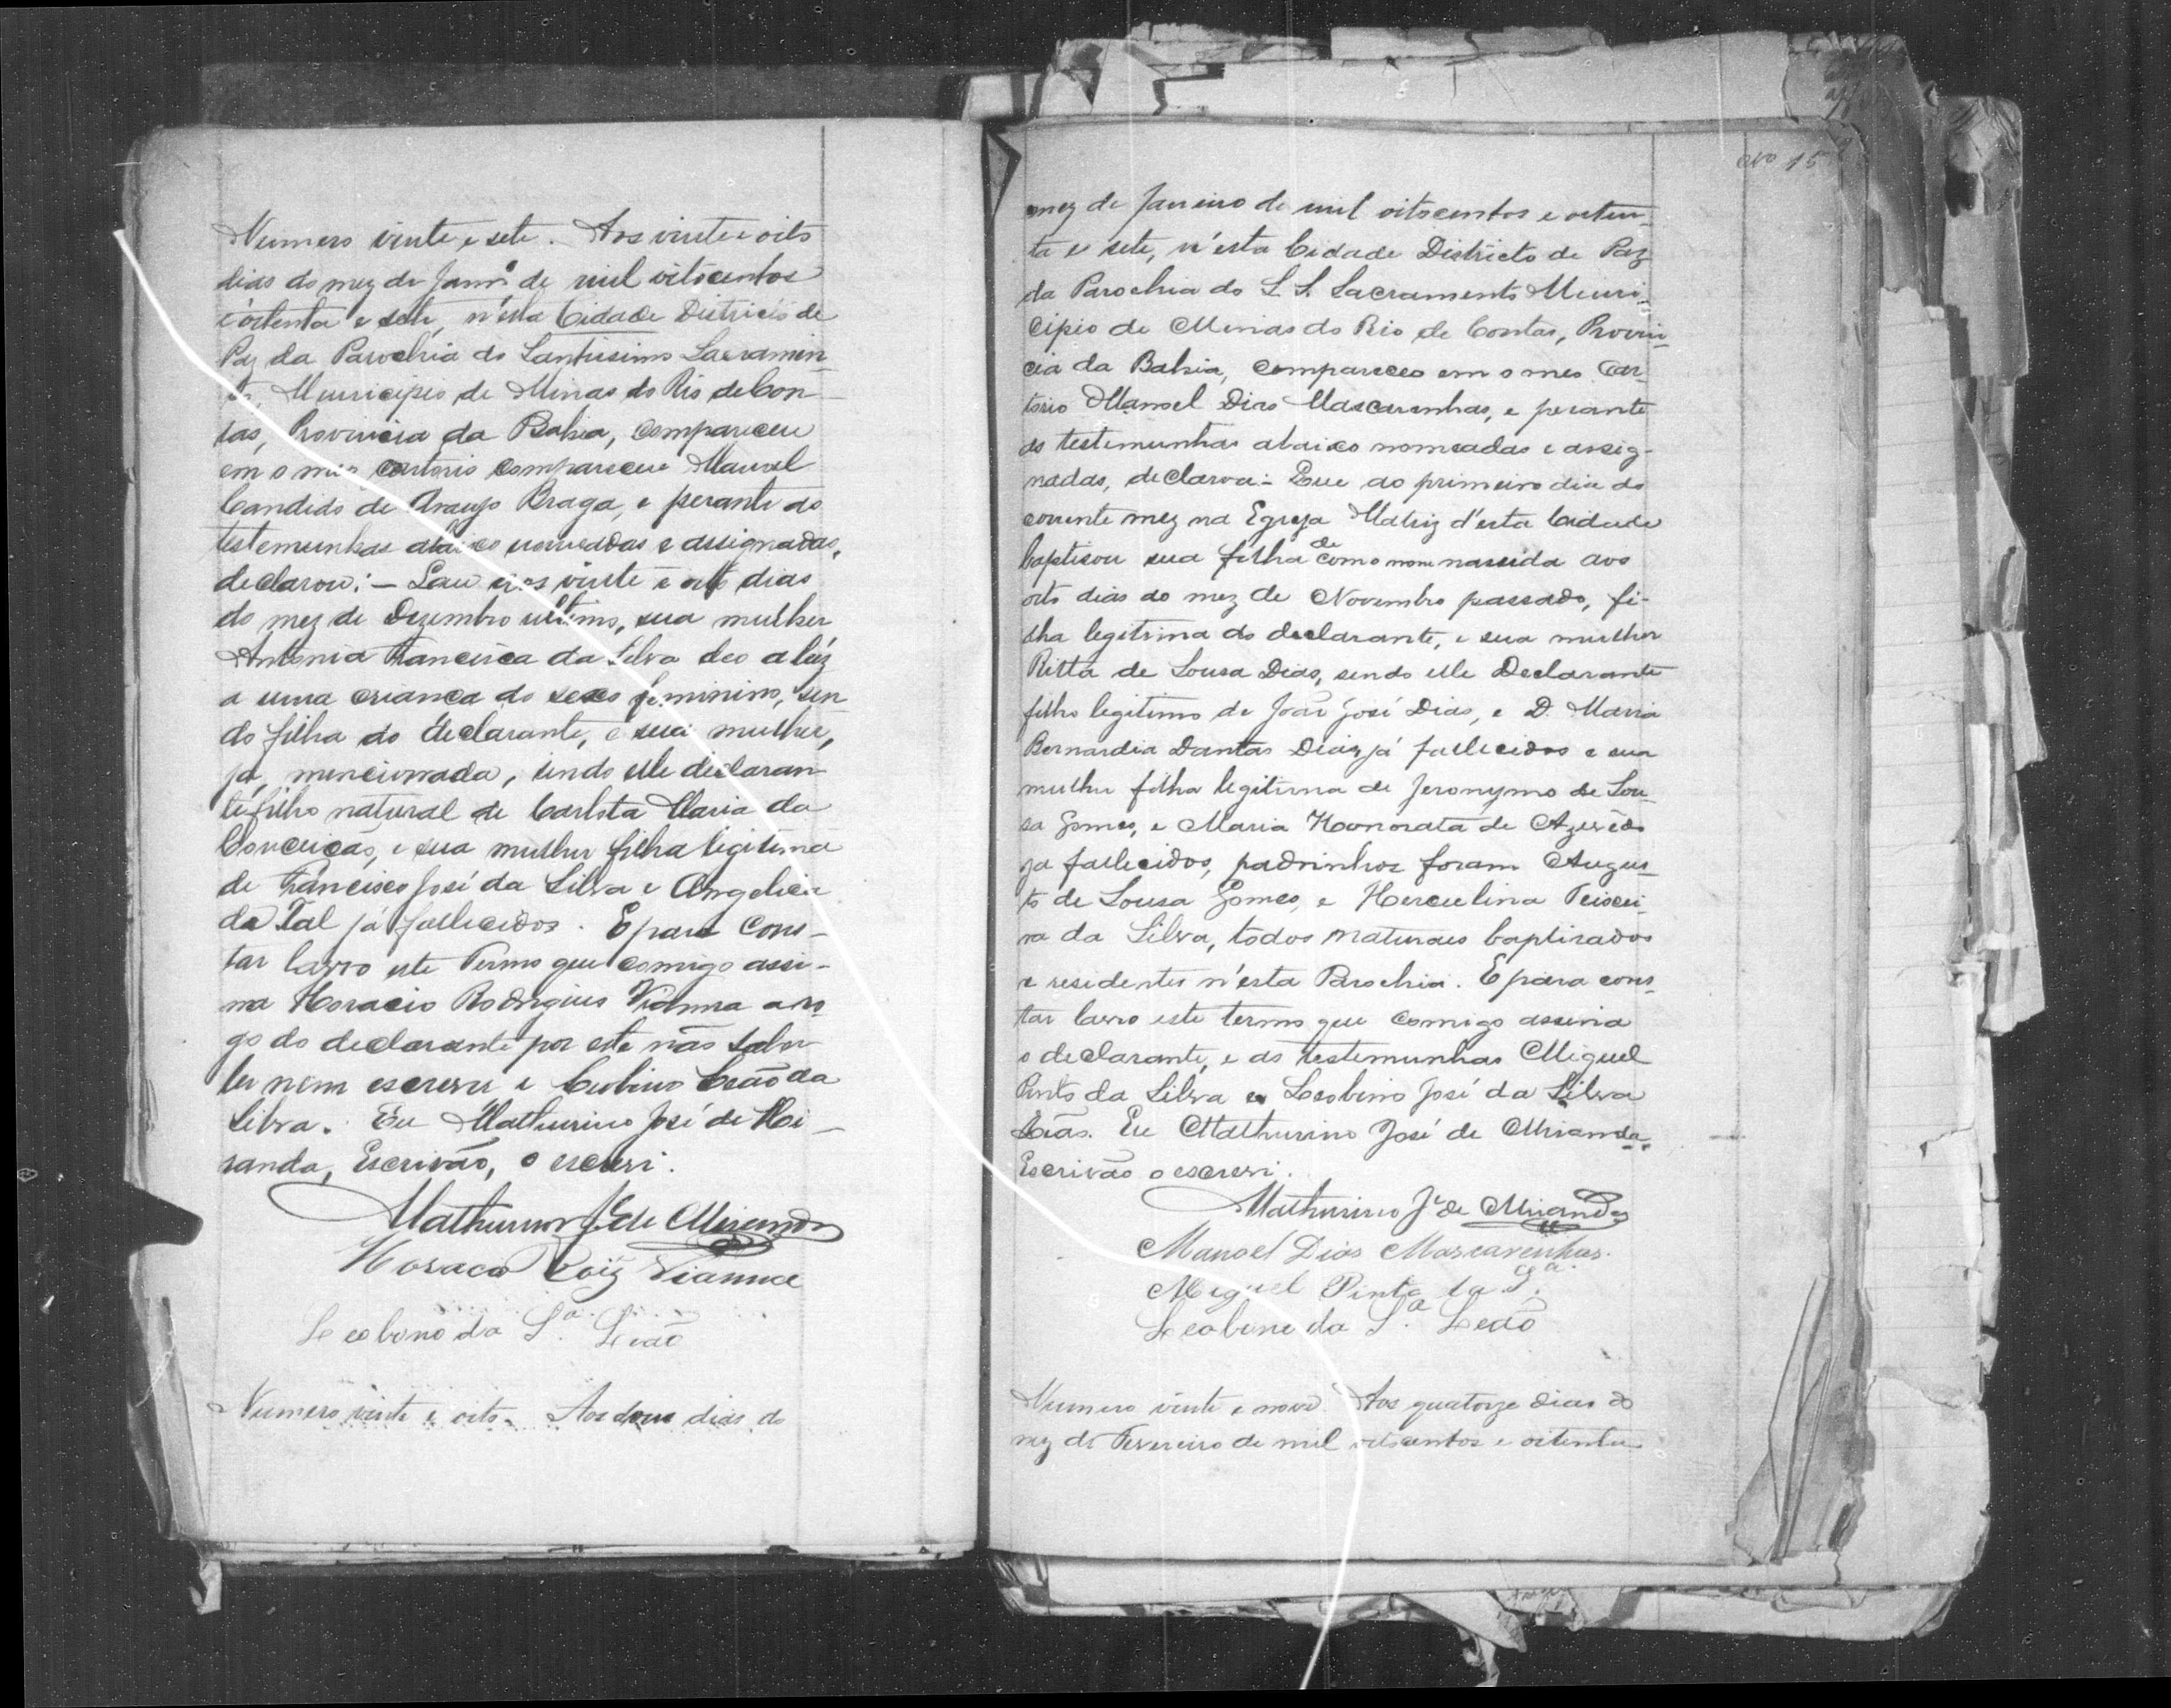 Numero vinte e sete. Aos vinte e oito
dias do mez de Janrº de mil oitocentos
e oitenta e sete, n'esta Cidade Districto de
Paz da Parochia do Santissimo Sacramen-
to, Municipio de Minas do Rio de Con-
tas, Provincia da Bahia, compareceu
em o meo cartorio compareceu Manoel
Candido de Araujo Braga, e perante as
testemunhas abaixo nomeadas e assignadas,
declarou: - aos vinte e dias
do mez de Dezembro ultimo, sua mulher
Antonia Francisca da Silva deo a lúz
a uma criança do sexo feminino, sen
do filha do declarante, e sua mulher,
já mencionada, sendo elle declaran-
te filho natural de Carlota Maria da
Conceição, e sua mulher filha legitima
de Francisco José da Silva e Angelica
de Tal já fallecidos. E para cons-
tar lavro este Termo que comigo assi-
na Horacio Rodrigues Vianna a ro-
go do declarante por este não saber
ler nem escrever e Leobino Leão da
Silva. Eu Mathurino José de Mi-
randa, Escrivão, o escrevi.
Mathurino Jé de Miranda
Horacio Roiz Vianna
Leobino da Sª. Leão
Numero vinte e oito. Aos dous dias do
Nº 15
mez de Janeiro de mil oitocentos e oiten-
ta e sete, n'esta Cidade Districto de Paz
da Parochia do S. S. Sacramento Muni-
cipio de Minas do Rio de Contas, Provin-
cia da Bahia, compareceo em o meo Car-
torio Manoel Dias Mascarenhas, e perante
as testemunhas abaixo nomeadas e assig-
nadas, declarou: Que ao primeiro dia do
corrente mez na Egreja Matriz d'esta Cidade
baptisou sua filha de como nome nascida aos
oito dias do mez de Novembro passado, fi-
lha legitima do declarante, e sua mulher
Ritta de Sousa Dias, sendo elle Declarante
filho legitimo de João José Dias, e D. Maria
Bernardia Dantas Dias já fallecidos e sua
mulher filha legitima de Jeronymo de Sou-
sa Gomes, e Maria Honorata de Azevêdo
ja fallecidos, padrinhos foram Augus-
to de Sousa Gomes, e Herculina Teixei-
ra da Silva, todos naturaes baptizados
e residentes n'esta Parochia. E para cons-
tar lavro este termo que comigo assina
o declarante, e as testemunhas Miguel
Pinto da Silva e Leobino José da Silva
Leão. Eu Mathurino José de Miranda,
Escrivão o escrevi.
Mathurino Jé de Miranda
Manoel Dias Mascarenhas.
Miguel Pinto da Sª.
Leobino da Sª. Leão
Numero vinte e nove. Aos quatorze dias do
mez de Fevereiro de mil oitocentos e oitenta